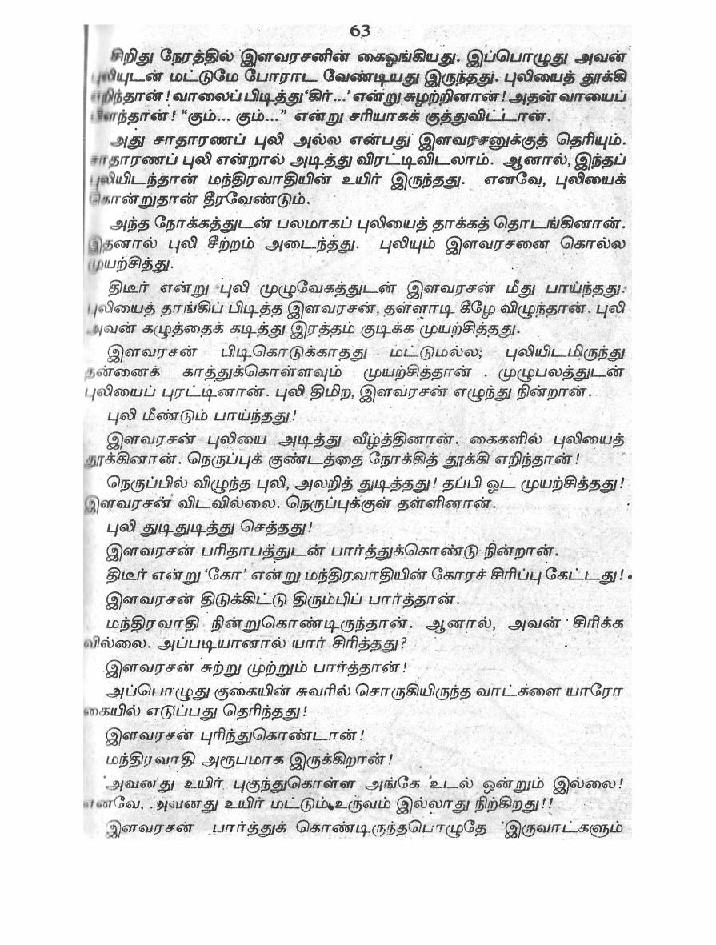 63
சிறிது நேரத்தில் இளவரசனின் கைஓங்கியது. இப்பொழுது அவன்
புலியுடன் மட்டுமே போராட வேண்டியது இருந்தது. புலியைத் தூக்கி
எறிந்தான்! வாலைப் பிடித்து 'கிர்...' என்று சுழற்றினான்! அதன் வாயைப்
பிளந்தான்! "கும்... கும்..." என்று சரியாகக் குத்துவிட்டான்.
அது சாதாரணப் புலி அல்ல என்பது இளவரசனுக்குத் தெரியும்.
சாதாரணப் புலி என்றால் அடித்து விரட்டிவிடலாம். ஆனால், இந்தப்
புலியிடந்தான் மந்திரவாதியின் உயிர் இருந்தது. எனவே, புலியைக்
கொன்றுதான் தீரவேண்டும்.
அந்த நோக்கத்துடன் பலமாகப் புலியைத் தாக்கத் தொடங்கினான்.
இதனால் புலி சீற்றம் அடைந்தது. புலியும் இளவரசனை கொல்ல
முயற்சித்து.
திடீர் என்று புலி முழுவேகத்துடன் இளவரசன் மீது பாய்ந்தது.
புலியைத் தாங்கிப் பிடித்த இளவரசன், தள்ளாடி கீழே விழுந்தான். புலி
அவன் கழுத்தைக் கடித்து இரத்தம் குடிக்க முயற்சித்தது.
இளவரசன் பிடிகொடுக்காதது மட்டுமல்ல; புலியிடமிருந்து
தன்னைக் காத்துக்கொள்ளவும் முயற்சித்தான் . முழுபலத்துடன்
புலியைப் புரட்டினான். புலி திமிற, இளவரசன் எழுந்து நின்றான்.
புலி மீண்டும் பாய்ந்தது!
இளவரசன் புலியை அடித்து வீழ்த்தினான். கைகளில் புலியைத்
தூக்கினான். நெருப்புக் குண்டத்தை நோக்கித் தூக்கி எறிந்தான்!
நெருப்பில் விழுந்த புலி, அலறித் துடித்தது! தப்பி ஓட முயற்சித்தது!
இளவரசன் விடவில்லை. நெருப்புக்குள் தள்ளினான்.
புலி துடிதுடித்து செத்தது!
இளவரசன் பரிதாபத்துடன் பார்த்துக்கொண்டு நின்றான்.
திடீர் என்று 'கோ' என்று மந்திரவாதியின் கோரச் சிரிப்பு கேட்டது!
இளவரசன் திடுக்கிட்டு திரும்பிப் பார்த்தான்.
மந்திரவாதி நின்றுகொண்டிருந்தான். ஆனால், அவன் சிரிக்க
வில்லை. அப்படியானால் யார் சிரித்தது?
இளவரசன் சுற்று முற்றும் பார்த்தான்!
அப்பொழுது குகையின் சுவரில் சொருகியிருந்த வாட்களை யாரோ
கையில் எடுப்பது தெரிந்தது!
இளவரசன் புரிந்துகொண்டான்!
மந்திரவாதி அரூபமாக இருக்கிறான்!
அவனது உயிர் புகுந்துகொள்ள அங்கே உடல் ஒன்றும் இல்லை!
எனவே, அவனது உயிர் மட்டும் உருவம் இல்லாது நிற்கிறது!!
இளவரசன் பார்த்துக் கொண்டிருந்தபொழுதே இருவாட்களும்